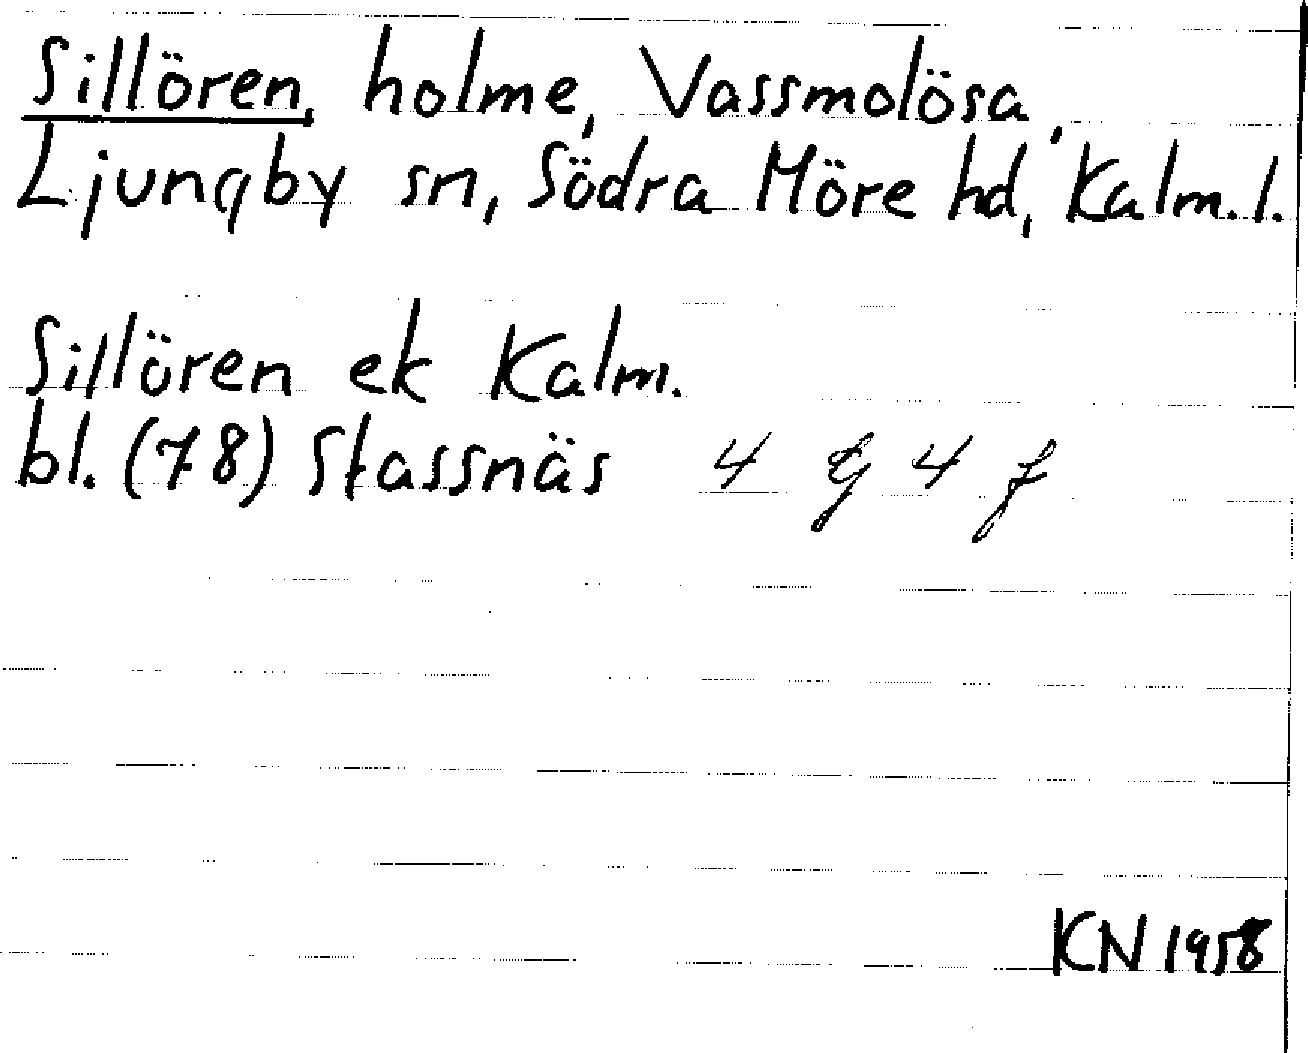 Sillören, holme, Vassmolösa,
Ljungby sn, Södra Möre hd, Kalm. l.
Sillören ek Kalm.
bl. (78) Stassnäs 4 g 4 f
KN 1958